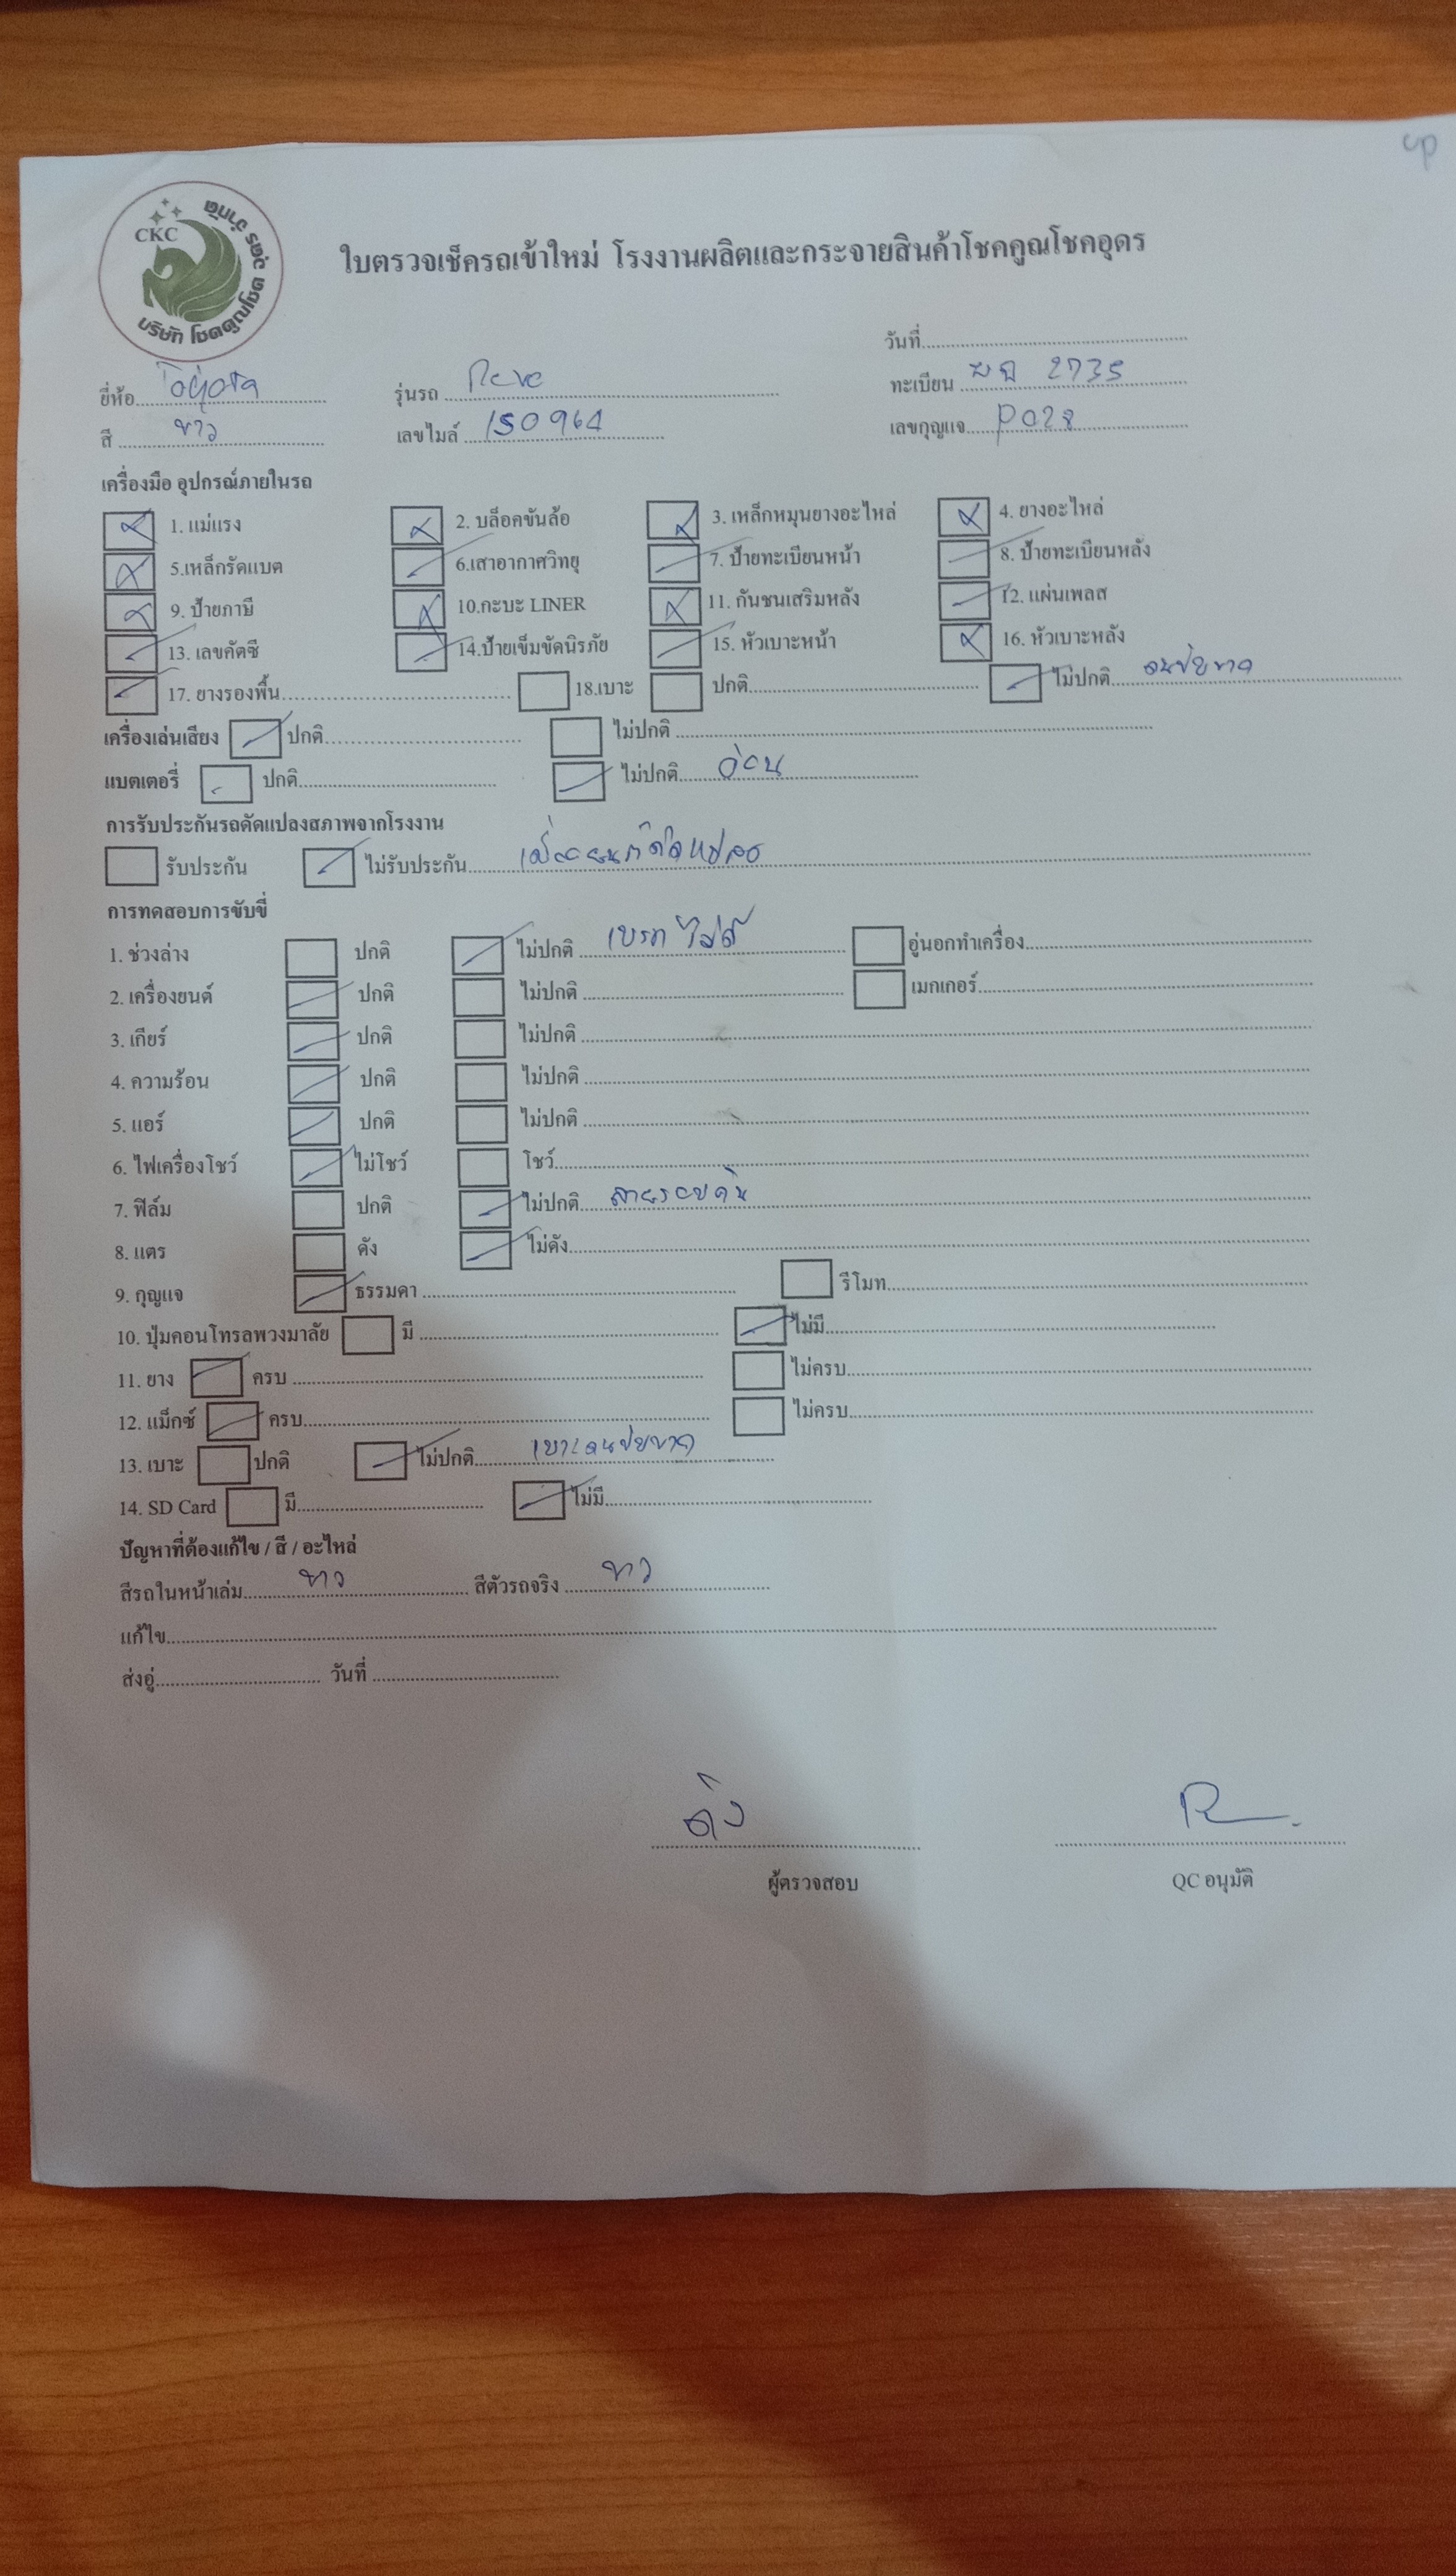 CKC
บริษัท โชคคูณโชค อุดร จำกัด
ใบตรวจเช็ครถเข้าใหม่ โรงงานผลิตและกระจายสินค้าโชคคูณโชคอุดร
วันที่
ยี่ห้อ รุ่นรถ Revo ทะเบียน 2735
สี ขาว เลขไมล์ 150964 เลขกุญแจ P028
เครื่องมือ อุปกรณ์ภายในรถ
1. แม่แรง 2. บล็อคขันล้อ 3. เหล็กหมุนยางอะไหล่ 4. ยางอะไหล่
5.เหล็กรัดแบต 6.เสาอากาศวิทยุ 7. ป้ายทะเบียนหน้า 8. ป้ายทะเบียนหลัง
9. ป้ายภาษี 10.กะบะ LINER 11. กันชนเสริมหลัง 12. แผ่นเพลส
13. เลขคัตซี 14.ป้ายเข็มขัดนิรภัย 15. หัวเบาะหน้า 16. หัวเบาะหลัง
17. ยางรองพื้น 18.เบาะ ปกติ ไม่ปกติ
เครื่องเล่นเสียง ปกติ ไม่ปกติ
แบตเตอรี่ ปกติ ไม่ปกติ อ่อน
การรับประกันรถดัดแปลงสภาพจากโรงงาน
รับประกัน ไม่รับประกัน
การทดสอบการขับขี่
1. ช่วงล่าง ปกติ ไม่ปกติ เบรก ไม่ดี อู่นอกทำเครื่อง
2. เครื่องยนต์ ปกติ ไม่ปกติ เมกเกอร์
3. เกียร์ ปกติ ไม่ปกติ
4. ความร้อน ปกติ ไม่ปกติ
5. แอร์ ปกติ ไม่ปกติ
6. ไฟเครื่องโชว์ ไม่โชว์ โชว์
7. ฟิล์ม ปกติ ไม่ปกติ ลายรอบคัน
8. แตร ดัง ไม่ดัง
9. กุญแจ ธรรมดา รีโมท
10. ปุ่มคอนโทรลพวงมาลัย มี ไม่มี
11. ยาง ครบ ไม่ครบ
12. แม็กซ์ ครบ ไม่ครบ
13. เบาะ ปกติ ไม่ปกติ
14. SD Card มี ไม่มี
ปัญหาที่ต้องแก้ไข / สี / อะไหล่
สีรถในหน้าเล่ม ขาว สีตัวรถจริง ขาว
แก้ไข
ส่งอู่ วันที่
ผู้ตรวจสอบ QC อนุมัติ